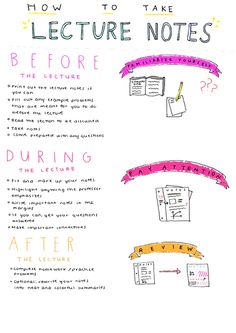 HOW TO TAKE
LECTURE NOTES
BEFORE
THE LECTURE
FAMILIARIZE YOURSELF
• Print out the lecture notes if
you can
• Fill out any example problems
that are meant for you to do
before the lecture
• Read the section to be discussed
• Take notes
• Come prepared with any questions
???
DURING
THE LECTURE
PAY ATTENTION
• Fix and mark up your notes
• Highlight anything the professor
emphasizes
• Write important notes in the
margins
• If you can, get your questions
answered
• Make important connections
AFTER
THE LECTURE
REVIEW
• Complete homework/practice
problems
• Optional: rewrite your notes
into neat and colorful summaries